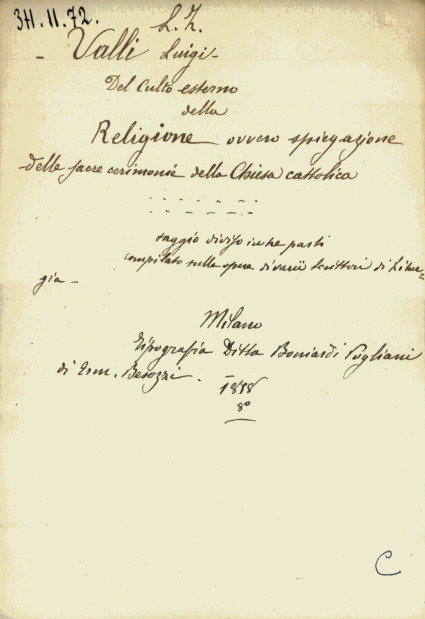 311.11.72.
L. Z.
- Valli Luigi -
Del Culto esterno
della
Religione ovvero spiegazione
delle sacre cerimonie della Chiesa cattolica
saggio diviso in tre parti
compilato sulle opere di varii scrittori di Litur-
gia -
Milano
Tipografia Ditta Boniardi Pogliani
di Erm. Besozzi. -
1888
8°
C